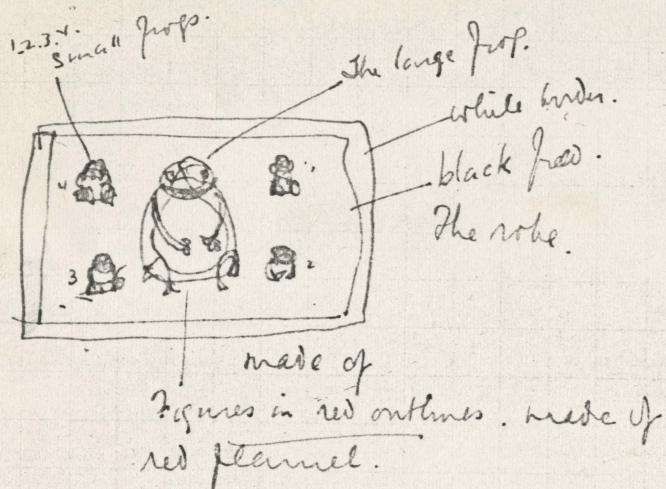 1.2.3.4.
small frogs.
The large frog.
white border.
black field.
The robe.
4
1
3
2
made of
Figures in red outlines. made of
red flannel.